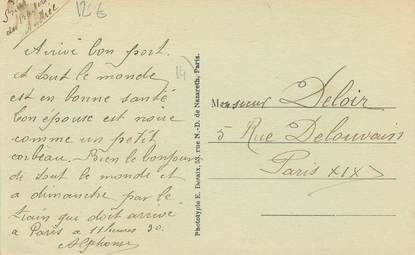 12 €
14
Arrivé bon port
et tout le monde
est en bonne santé
ton épouse est noire
comme un petit
corbeau. Bien le bonjour
de tout le monde et
a dimanche par le
train qui doit arrivé
à Paris a 11 heures 30.
Alphonse
Phototypie E. Desaix, 53, rue N.-D. de Nazareth, Paris.
Monsieur Deloir
5 Rue Delouvain
Paris XIX